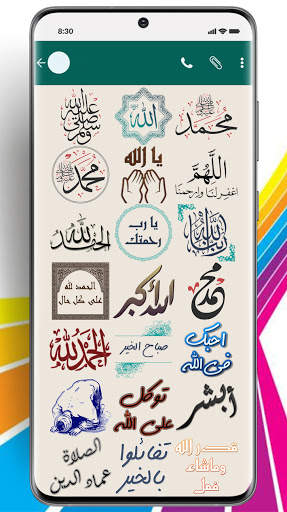 8:30
محمد
الله
صلى الله عليه وسلم
يا الله
اللّهُمَّ
اغفر لنا وارحمنا
محمد
الحمد لله
يا رب
رحمتك
الحمد لله
على كل حال
الله أكبر
محمد
الحمد لله
صباح الخير
احبك
في الله
توكل
على الله
أبشر
الصلاة
عماد الدين
تفائلوا
بالخير
قدر الله
وماشاء
فعل